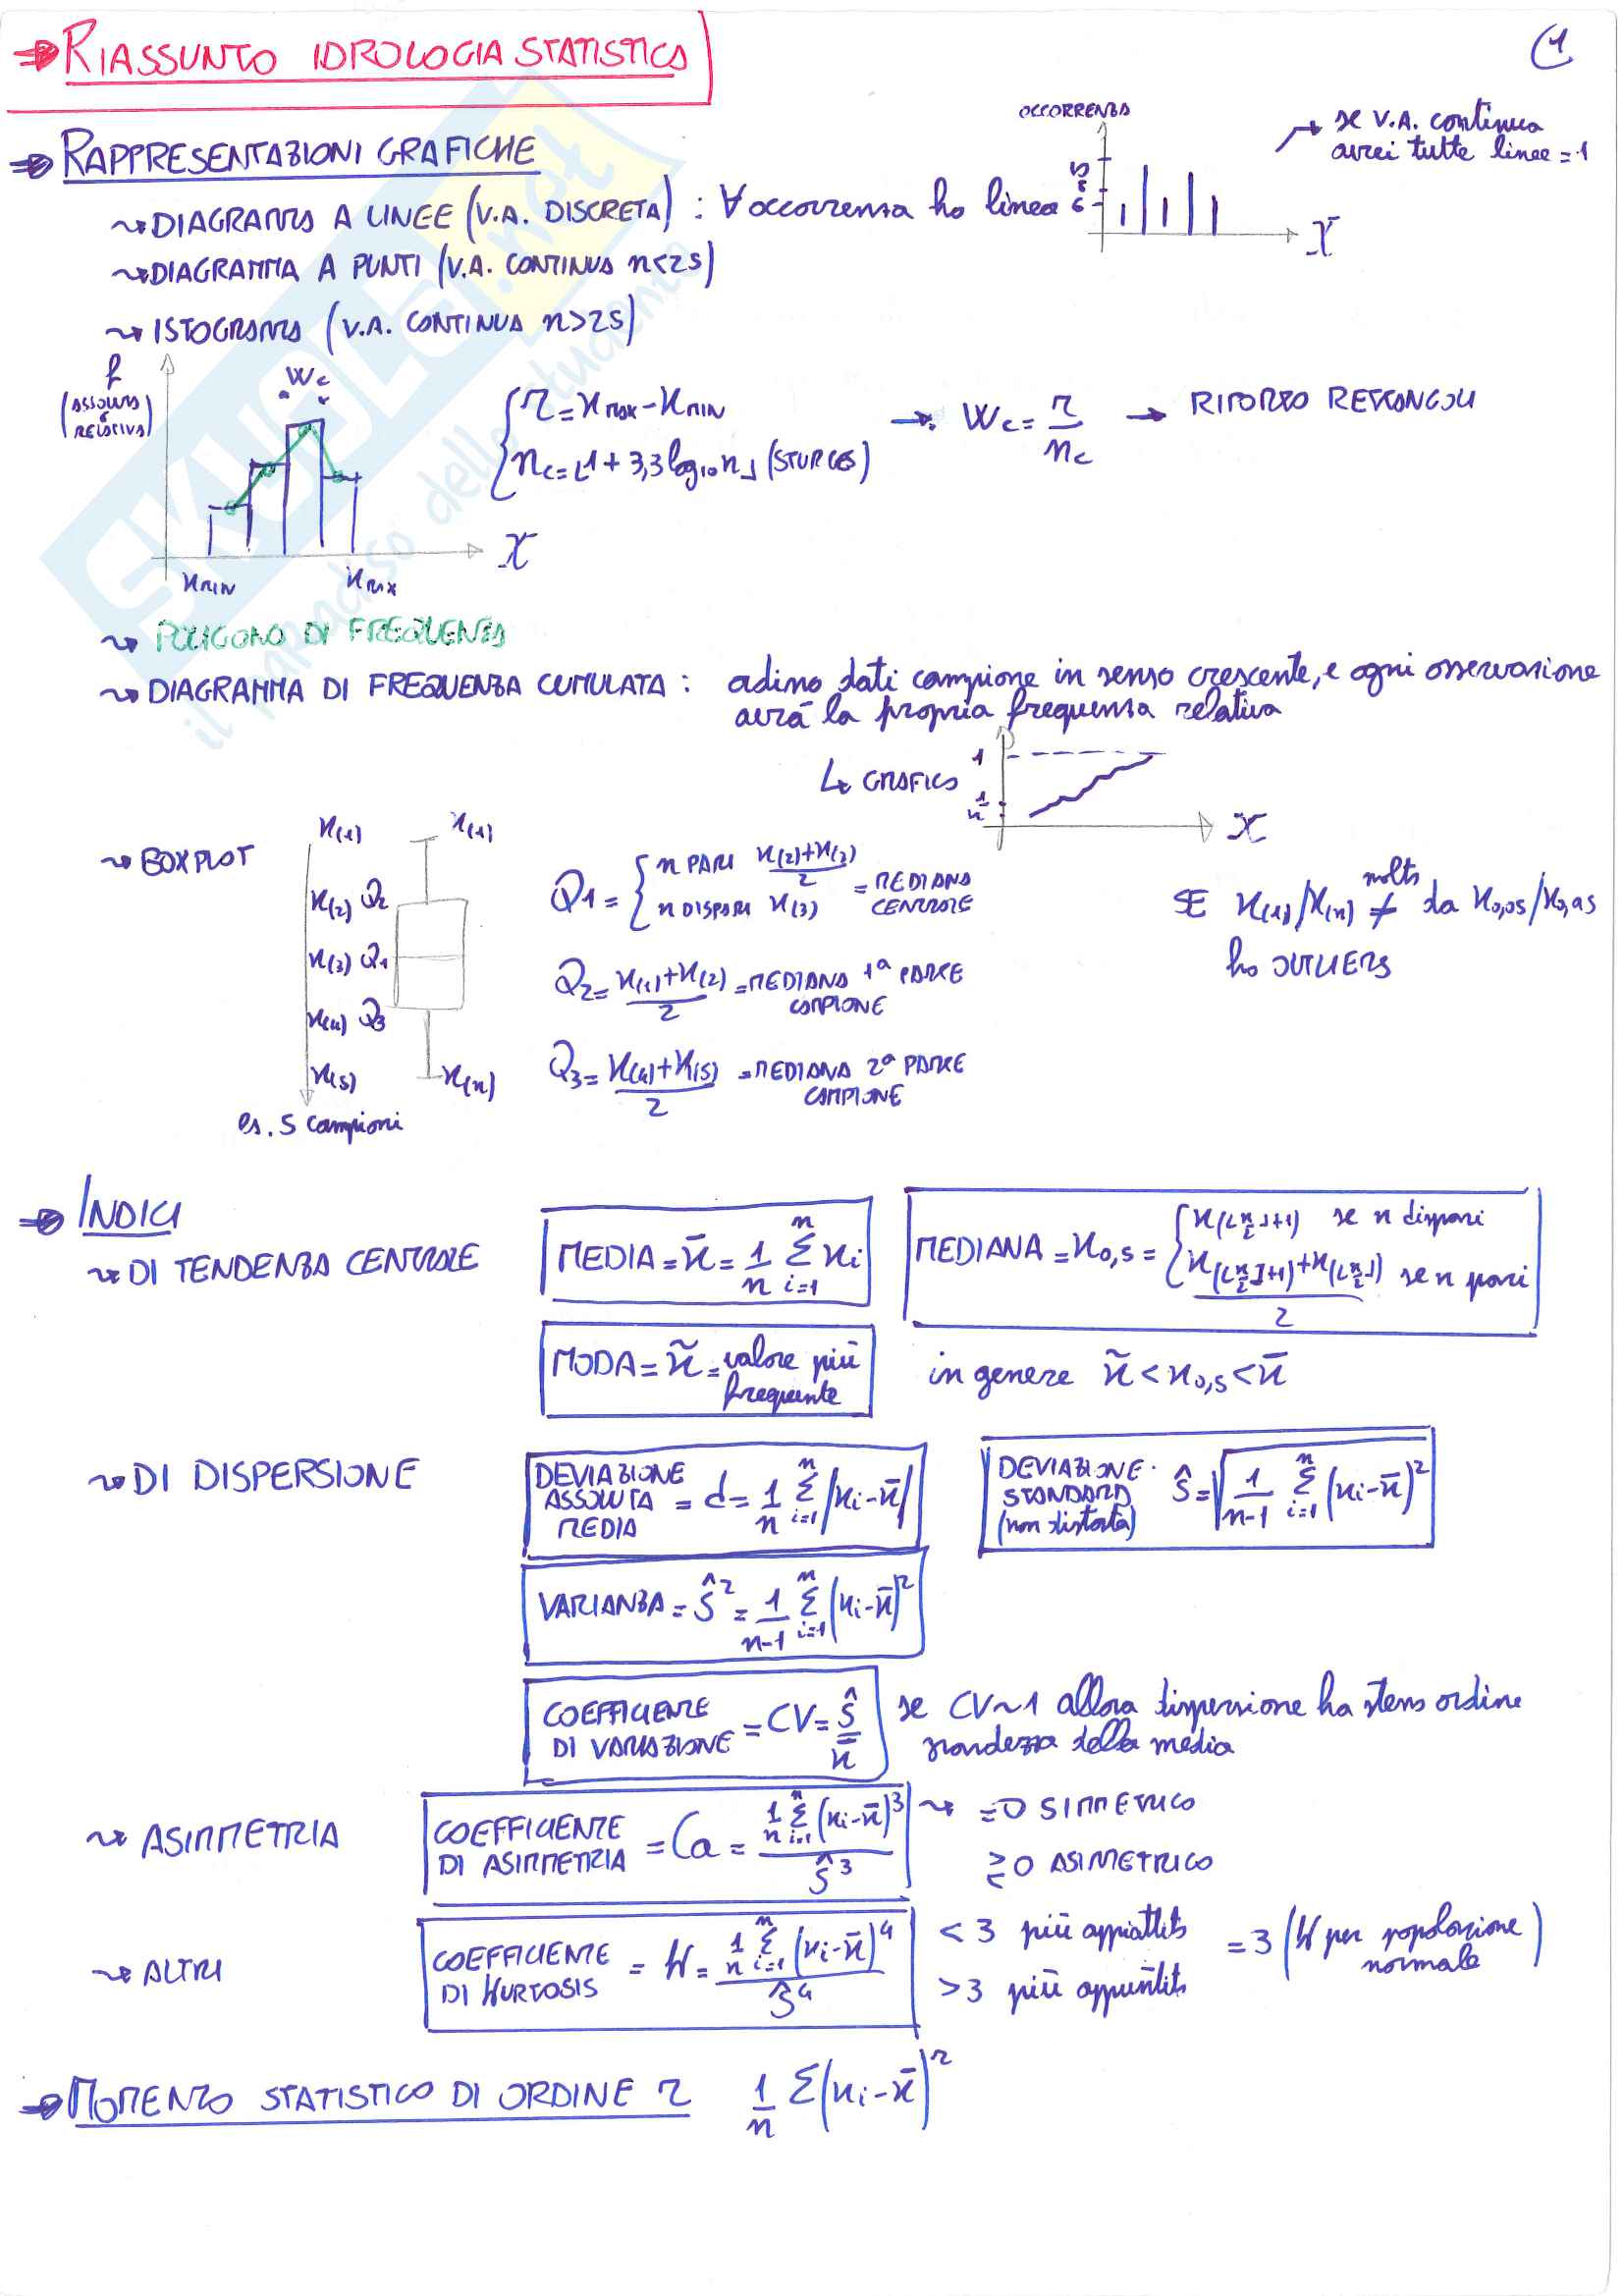 RIASSUNTO IDROLOGIA STATISTICA
1
RAPPRESENTAZIONI GRAFICHE
DIAGRAMMA A LINEE (V.A. DISCRETA) : ∀ occorrenza ho linea
OCCORRENZA
X
se V.A. continua
avrei tutte linee = 1
DIAGRAMMA A PUNTI (V.A. CONTINUA n<25)
ISTOGRAMMA (V.A. CONTINUA n>25)
f
(ASSOLUTA
o
RELATIVA)
Wc
xMIN
xMAX
X
r = xMAX - xMIN
nc = ⌊1 + 3,3 log10 n⌋ (STURGES)
→ Wc = r/nc → RIPORTO RETTANGOLI
POLIGONO DI FREQUENZA
DIAGRAMMA DI FREQUENZA CUMULATA : ordino dati campione in senso crescente, e ogni osservazione
avrà la propria frequenza relativa
↳ GRAFICO
1
1/n
X
BOXPLOT
x(1)
x(2) Q2
x(3) Q1
x(4) Q3
x(5)
es. 5 campioni
x(1)
x(n)
Q1 = { n PARI (x(2)+x(3))/2
n DISPARI x(3) = MEDIANA CENTRALE
Q2 = (x(1)+x(2))/2 = MEDIANA 1ª PARTE CAMPIONE
Q3 = (x(4)+x(5))/2 = MEDIANA 2ª PARTE CAMPIONE
SE x(1)/x(n) molto ≠ da x0,05/x0,95
ho OUTLIERS
INDICI
DI TENDENZA CENTRALE
MEDIA = x̄ = 1/n Σ i=1 n xi
MEDIANA = x0,5 = { x(⌊n/2⌋+1) se n dispari
(x(⌊n/2⌋+1) + x(⌊n/2⌋))/2 se n pari
MODA = x̃ = valore più
frequente
in genere x̃ < x0,5 < x̄
DI DISPERSIONE
DEVIAZIONE
ASSOLUTA
MEDIA = d = 1/n Σ i=1 n |xi - x̄|
DEVIAZIONE
STANDARD
(non distorta) Ŝ = √(1/(n-1) Σ i=1 n (xi - x̄)²)
VARIANZA = Ŝ² = 1/(n-1) Σ i=1 n (xi - x̄)²
COEFFICIENTE
DI VARIAZIONE = CV = Ŝ/x̄
se CV~1 allora dispersione ha stesso ordine
grandezza della media
ASIMMETRIA
COEFFICIENTE
DI ASIMMETRIA = Ca = (1/n Σ i=1 n (xi - x̄)³)/Ŝ³
=0 SIMMETRICO
≷0 ASIMMETRICO
ALTRI
COEFFICIENTE
DI KURTOSIS = K = (1/n Σ i=1 n (xi - x̄)⁴)/Ŝ⁴
< 3 più appiattito
> 3 più appuntito
= 3 (K per popolazione
normale)
MOMENTO STATISTICO DI ORDINE r 1/n Σ(xi - x̄)^r
SKUOLA.net
il paradiso dello studente